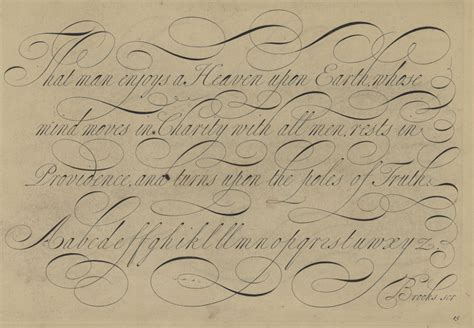 That man enjoys a Heaven upon Earth, whose
mind moves in Charity with all men, rests in
Providence, and turns upon the poles of Truth.
Aabcdeffghiklllmnopqrestuwxyz
Brooks scr